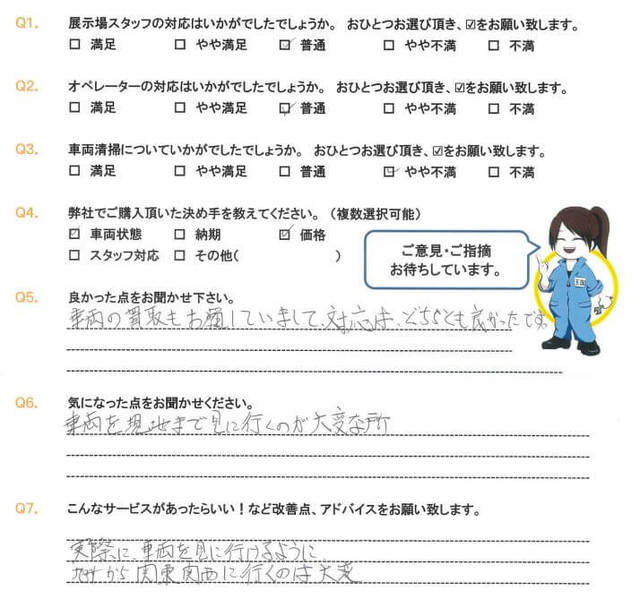 Q1. 展示場スタッフの対応はいかがでしたでしょうか。 おひとつお選び頂き、☑をお願い致します。
□ 満足 □ やや満足 ☑ 普通 □ やや不満 □ 不満
Q2. オペレーターの対応はいかがでしたでしょうか。 おひとつお選び頂き、☑をお願い致します。
□ 満足 □ やや満足 ☑ 普通 □ やや不満 □ 不満
Q3. 車両清掃についていかがでしたでしょうか。 おひとつお選び頂き、☑をお願い致します。
□ 満足 □ やや満足 □ 普通 ☑ やや不満 □ 不満
Q4. 弊社でご購入頂いた決め手を教えてください。(複数選択可能)
☑ 車両状態 □ 納期 ☑ 価格
□ スタッフ対応 □ その他( )
ご意見・ご指摘
お待ちしています。
Q5. 良かった点をお聞かせ下さい。
車両の買取もお願していまして、対応は、どちらとも良かったです。
Q6. 気になった点をお聞かせください。
車両を現地まで見に行くのが大変な所
Q7. こんなサービスがあったらいい!など改善点、アドバイスをお願い致します。
実際に、車両を見に行けるように
から関東関西に行くのは大変